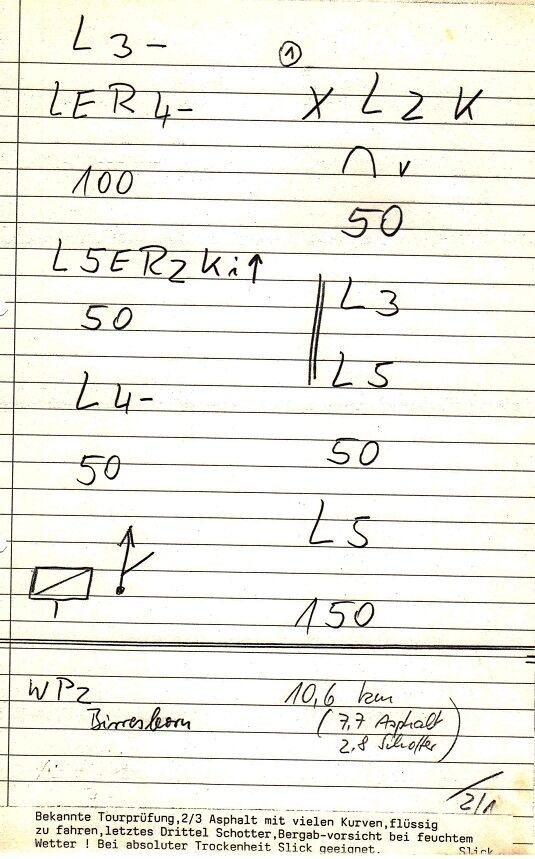 L 3 -
LER 4-
100
L5ER2 Ki↑
50
L 4-
50
①
X L 2 K
∩ v
50
L 3
L 5
50
L 5
150
WP2
Birresborn
10,6 km
(7,7 Asphalt
2,8 Schotter)
2/1
Bekannte Tourprüfung,2/3 Asphalt mit vielen Kurven,flüssig
zu fahren,letztes Drittel Schotter,Bergab-vorsicht bei feuchtem
Wetter ! Bei absoluter Trockenheit Slick geeignet.
Slick